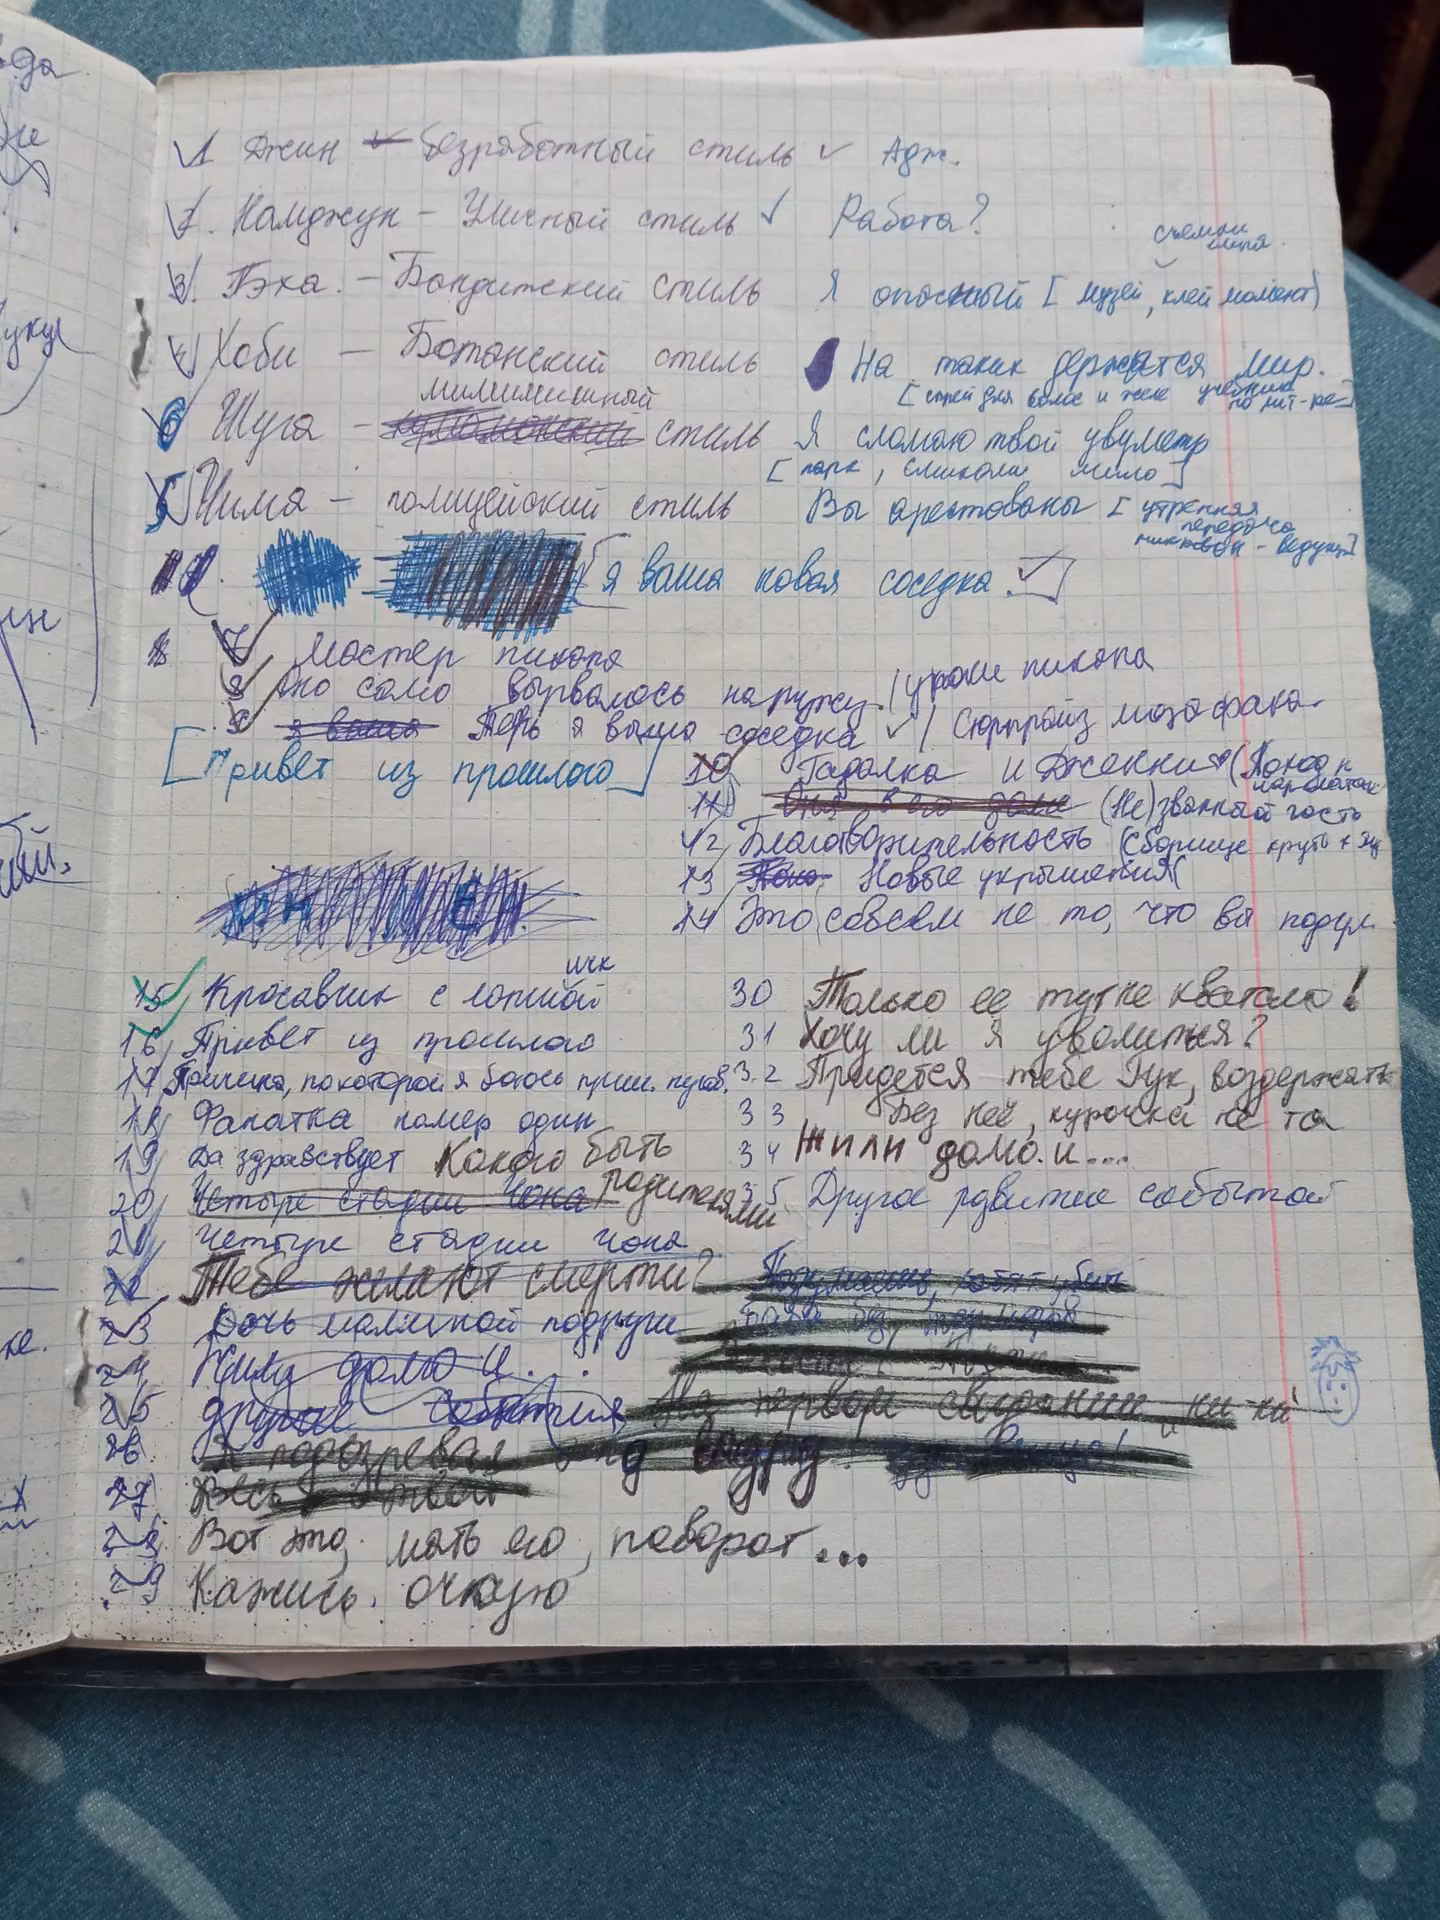 1 Джин - безработный стиль Адж.
2. Намджун - Уличный стиль Работа?
съемки
3. Тэха. - Бандитский стиль Я опасный [музей, клей момент)
4 Хоби - Ботанский стиль На таких держится мир.
[спрей для волос и желе учебник по лит-ре]
милишишный
6 Шуга - стиль Я сломаю твой увуметр
[парк, слишком мило]
5 Чима - полицейский стиль Вы арестованы [утренняя
передача
микрофон - ведущ]
я ваша новая соседка.
7 Мастер пикапа
8 Оно само вырвалось наружу. / уроки пикапа
9 я ваша Теперь я ваша соседка / Сюрпрайз мазафака.
[Привет из прошлого]
10 Гадалка и Дженни (Поход к
11 (Не)званный гость
12 Благотворительность (Сборище круть +
13 Новые украшения(
14 Это совсем не то, что вы подум.
ичк
15 Красавчик с лапшой
16 Привет из прошлого
17 Причина, по которой я боюсь приш. пугов.
18 Фанатка номер один
19 Да здравствует Каково быть
20 Четыре стадии Чона родителями
21 Четыре стадии Чона
22 Тебе желают смерти?
23 Дочь маминой подруги
24 Жили долго и...
25 другое события На первом свидании ни ни
26 Я подозревал
27 Весь
28 Вот это, мать его, поворот...
29 Кажись. очкую
30 Только ее тут не хватало!
31 Хочу ли я уволиться?
32 Придется тебе Гук, воздержать
33 Без неё, курочка не та
34 Жили долго. и...
35 Другое развитие событий